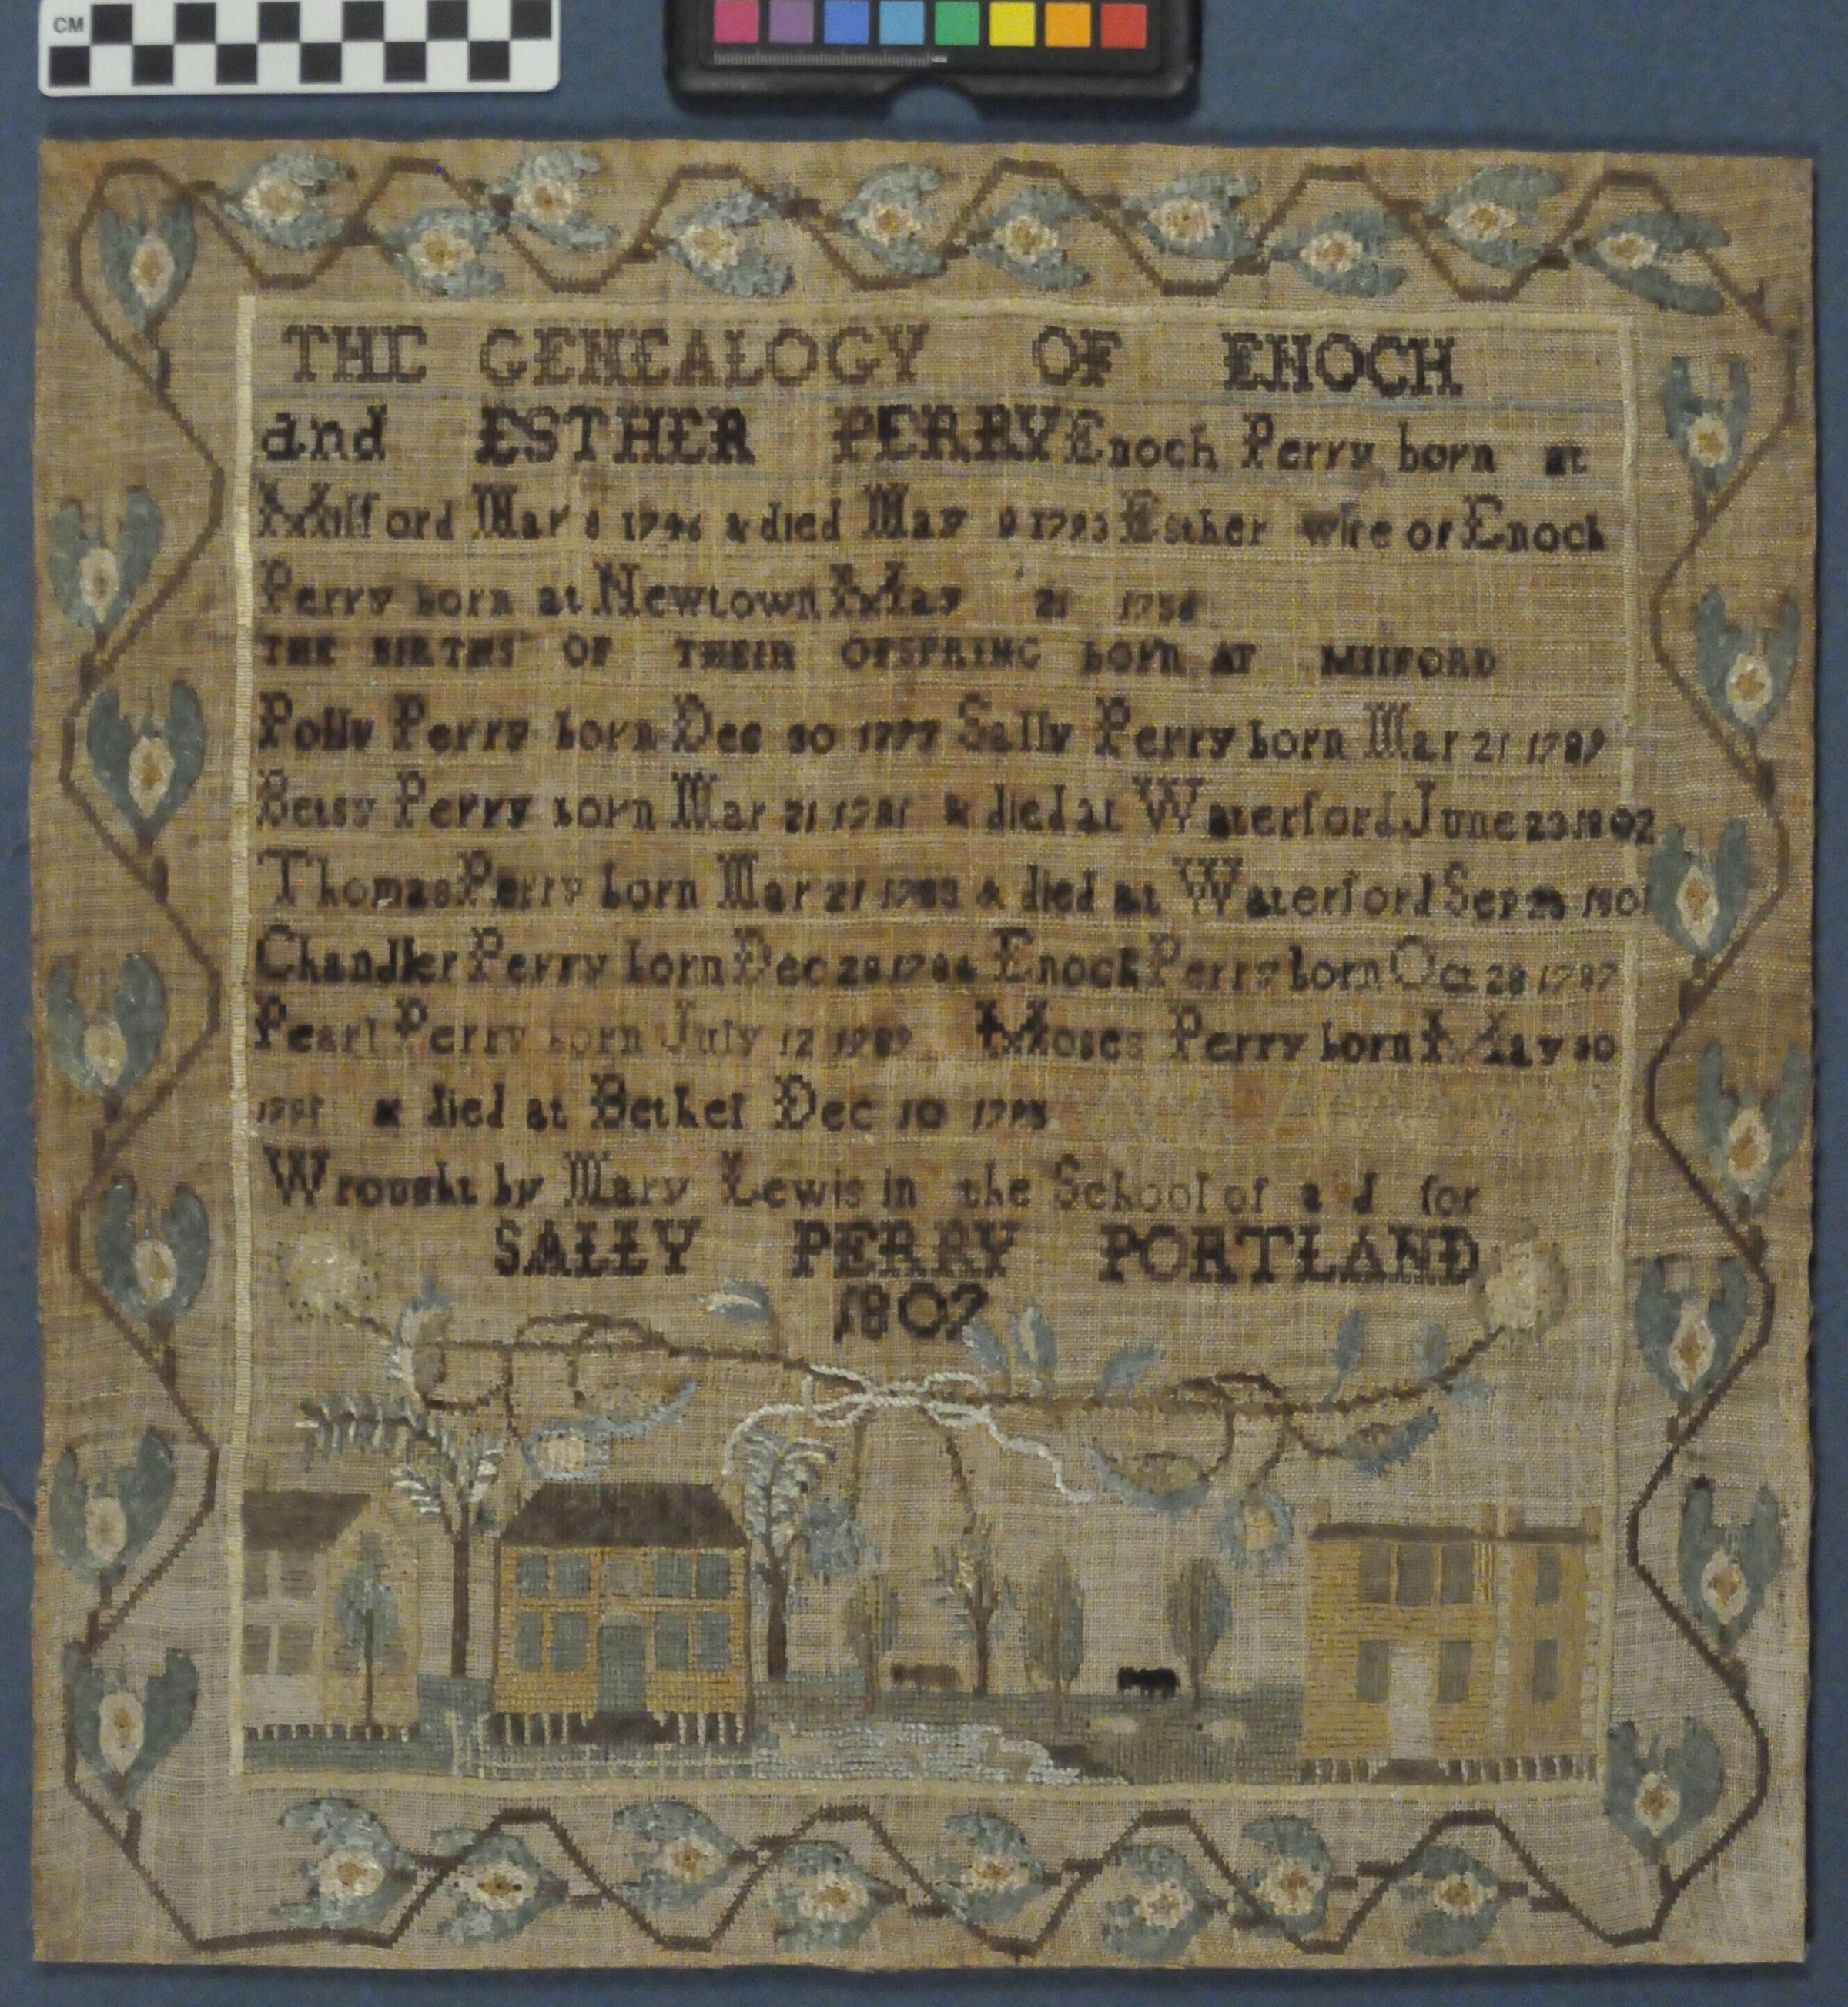 CM
THE GENEALOGY OF ENOCH
and ESTHER PERRY Enoch Perry born at
Milford Mar 8 1746 & died May 9 1793 Esther wife of Enoch
Perry born at Newtown May 21 1756
THE BIRTHS OF THEIR OFSPRING BORN AT MILFORD
Polly Perry born Dec 30 1777 Sally Perry born Mar 21 1789
Betsy Perry born Mar 21 1781 & died at Waterford June 23 1802
Thomas Perry born Mar 21 1783 & died at Waterford Sep 1801
Chandler Perry born Dec 28 Enoch Perry born Oct 28 1787
Pearl Perry born July 12 1789 Moses Perry born May 30
& died at Bethel Dec 10 1795
Wrought by Mary Lewis in the School of a d for
SALLY PERRY PORTLAND
1807